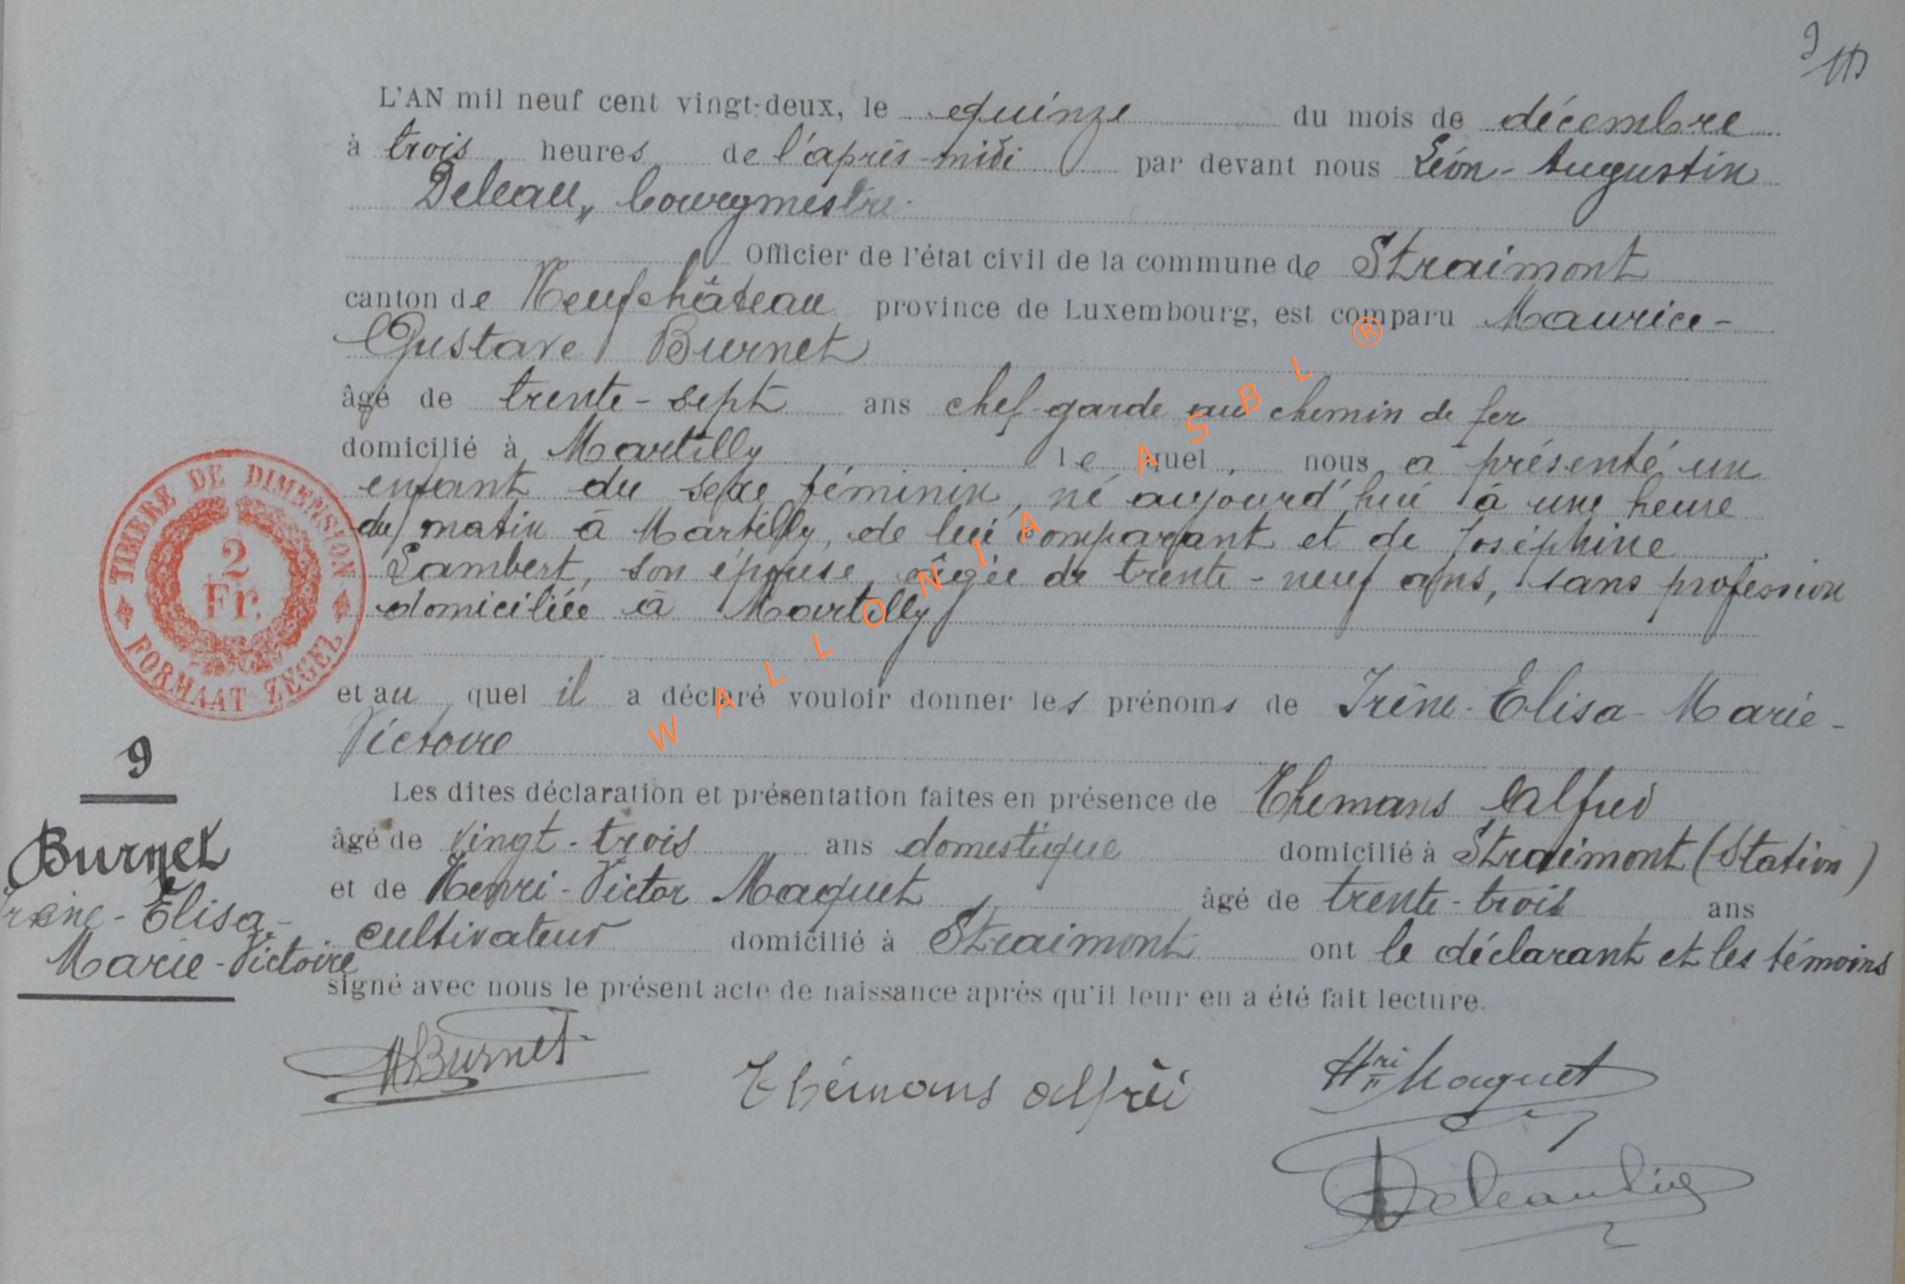 L'AN mil neuf cent vingt-deux, le quinze du mois de décembre
à trois heures de l'après-midi par devant nous Léon-Augustin
Deleau, bourgmestre
Officier de l'état civil de la commune de Straimont
canton de Neufchâteau province de Luxembourg, est comparu Maurice-
Gustave Burnet
âgé de trente-sept ans chef-garde au chemin de fer
domicilié à Martilly lequel, nous a présenté un
enfant du sexe féminin, né aujourd'hui à une heure
du matin à Martilly, de lui comparant et de Joséphine
Lambert, son épouse, âgée de trente-neuf ans, sans profession
domiciliée à Martilly
et au quel il a déclaré vouloir donner les prénoms de Irène-Elisa-Marie-
Victoire
Les dites déclaration et présentation faites en présence de Themans Alfred
âgé de vingt-trois ans domestique domicilié à Straimont (Station)
et de Henri-Victor Maquet âgé de trente-trois ans
cultivateur domicilié à Straimont ont le déclarant et les témoins
signé avec nous le présent acte de naissance après qu'il leur en a été fait lecture.
MBurnet
Thémans Alfrèd
Hri Maquet
TIMBRE DE DIMENSION
2
Fr.
FORMAAT ZEGEL
9
Burnet
Irène-Elisa-
Marie-Victoire
WALLONIA ASBL ®